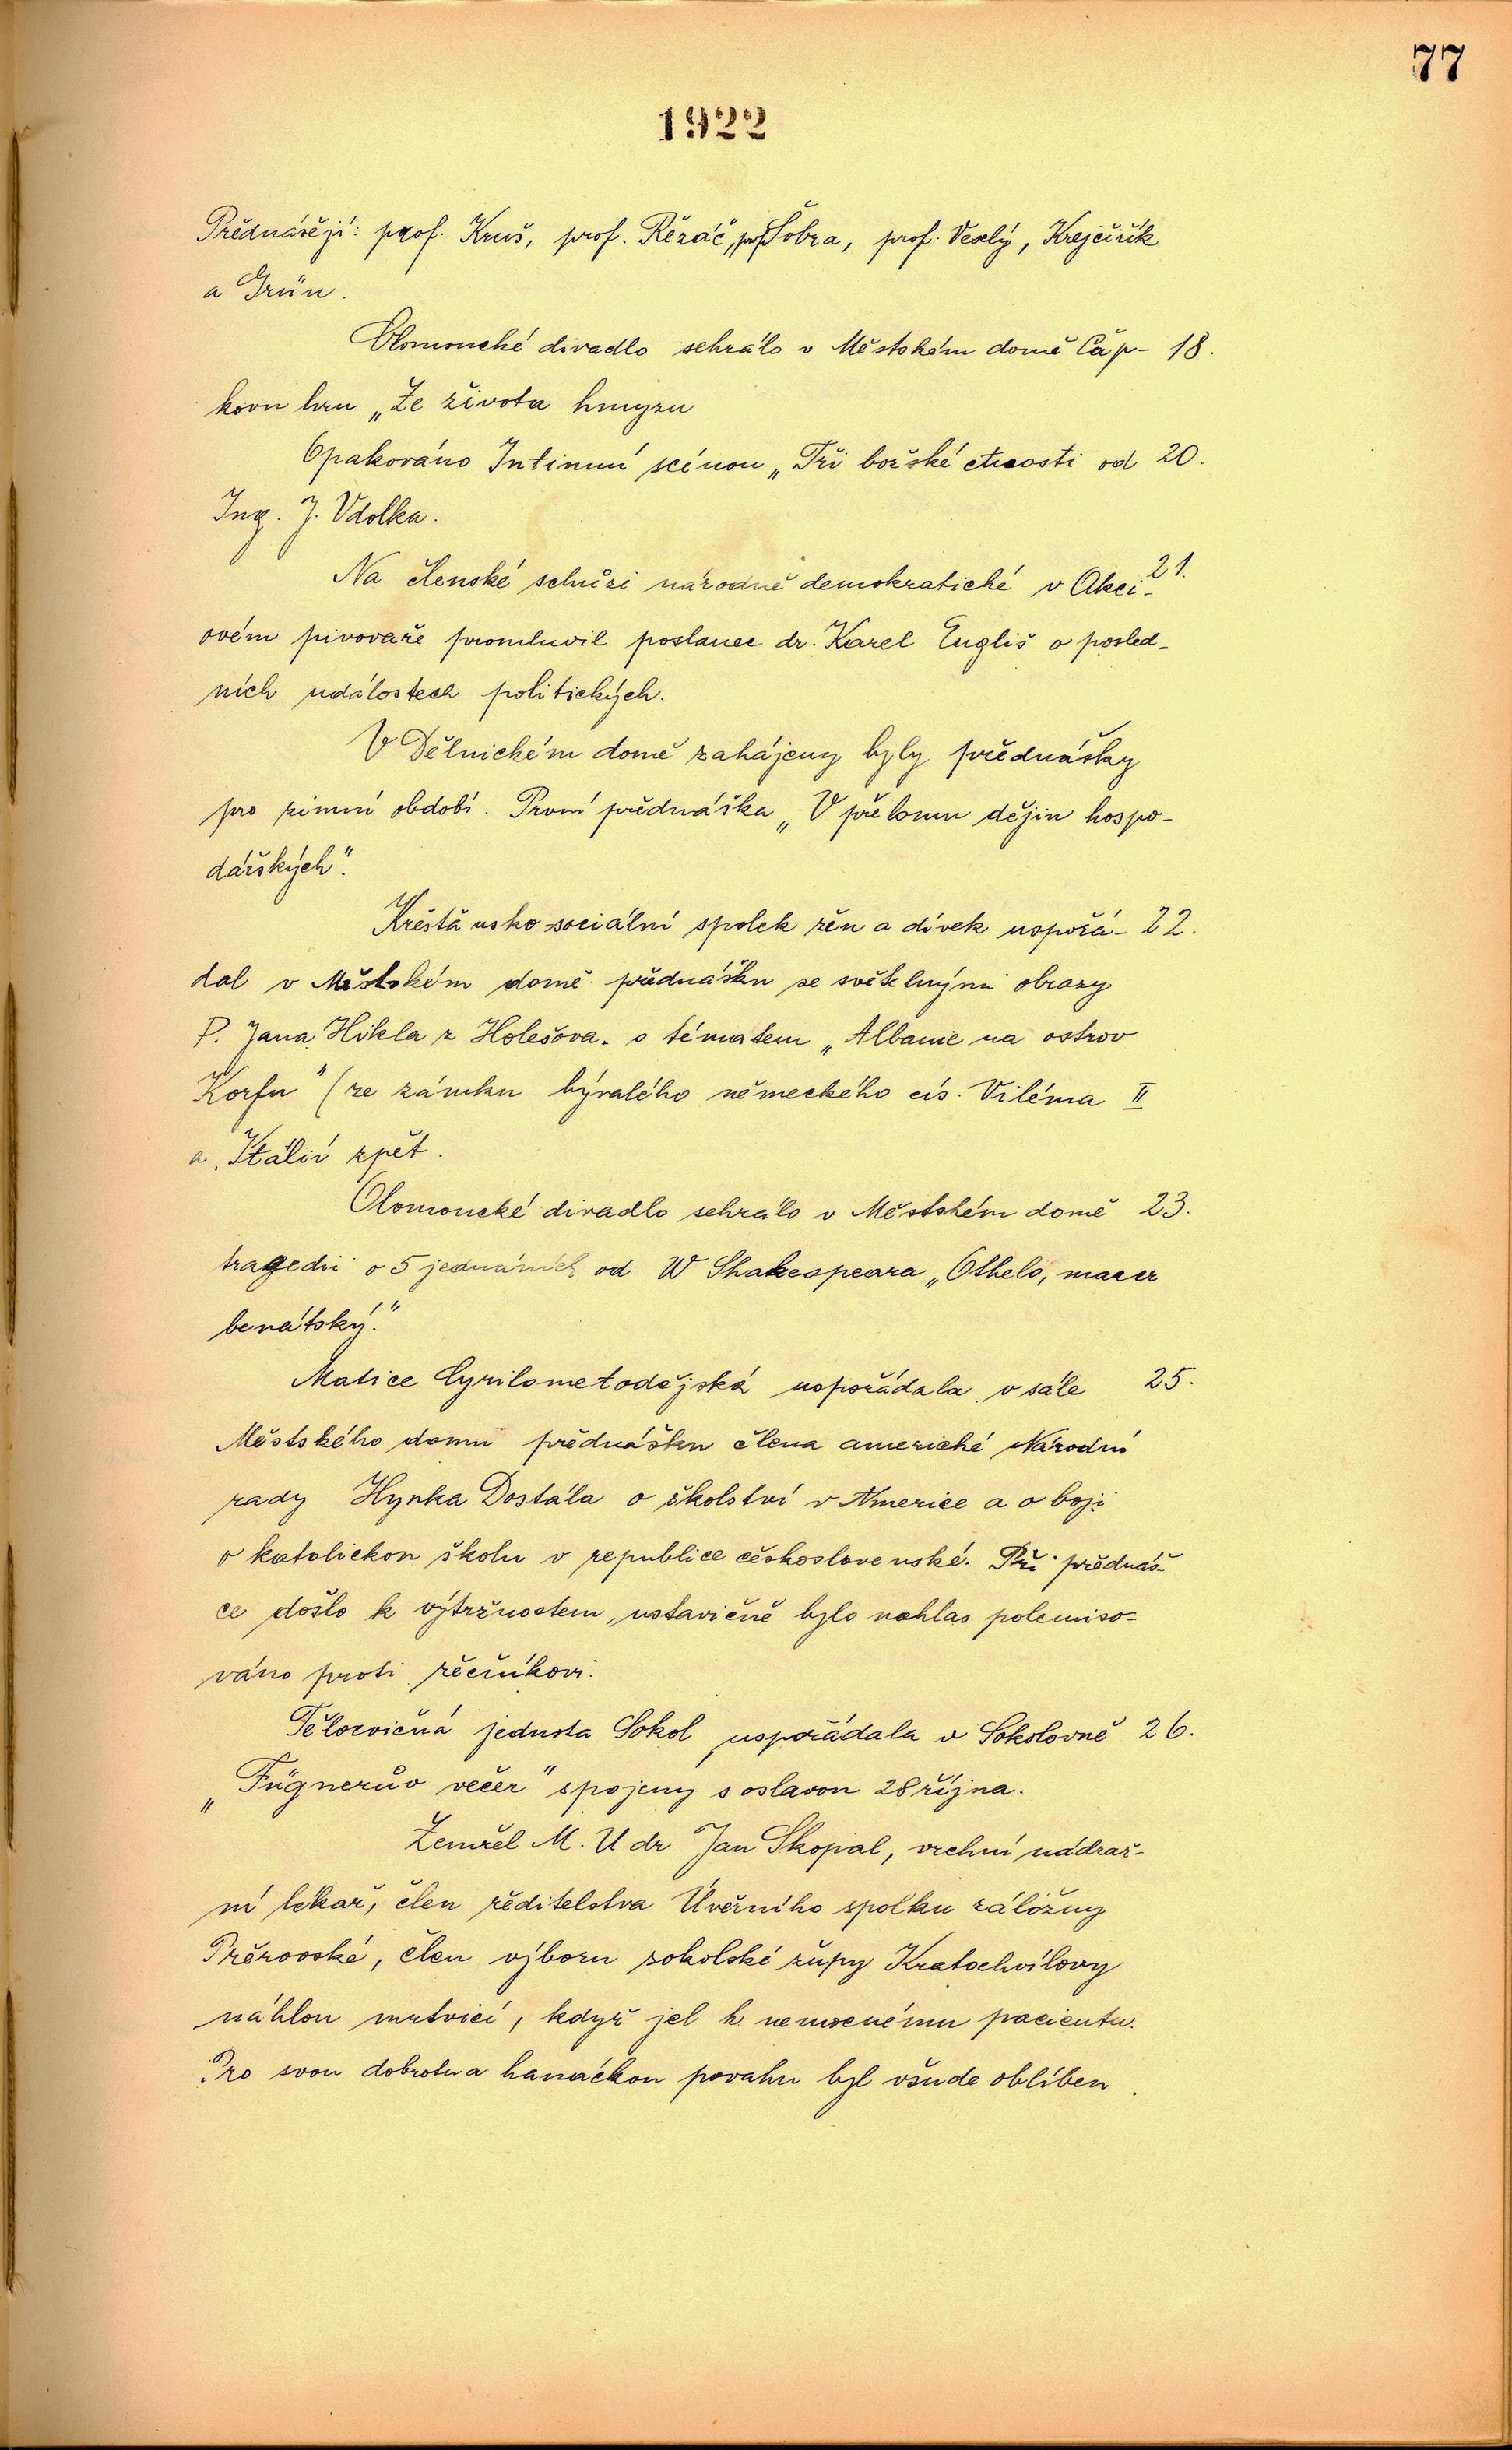 77
1922
Přednášejí: prof. Kruš, prof. Řezáč, prof. Šobra, prof. Veselý, Krejčiřík
a Grün.
Olomoucké divadlo sehrálo v Městském domě Čap- 18.
kovu hru „Ze života hmyzu
Opakováno Intimní scénou „Tři božské ctnosti od 20.
Ing. J. Vdolka.
Na členské schůzi národně demokratické v Akci- 21.
ovém pivovaře promluvil poslanec dr. Karel Engliš o posled-
ních událostech politických.
V Dělnickém domě zahájeny byly přednášky
pro zimní období. První přednáška „V přelomu dějin hospo-
dářských".
Křesťansko-sociální spolek žen a dívek uspořá- 22.
dal v Městském domě přednášku se světelnými obrazy
P. Jana Hikla z Holešova. s tématem „Albanie na ostrov
Korfu" (ze zámku bývalého německého cís. Viléma II
a Itálií zpět.
Olomoucké divadlo sehrálo v Městském domě 23.
tragedii o 5 jednáních od W Shakespeara „Othelo, mouřenín
benátský."
Matice Cyrilometodějská uspořádala v sále 25.
Městského domu přednášku člena americké Národní
rady Hynka Dostála o školství v Americe a o boji
o katolickou školu v republice československé. Při přednáš-
ce došlo k výtržnostem, ustavičně bylo nahlas polemiso-
váno proti řečníkovi.
Tělocvičná jednota Sokol uspořádala v Sokolovně 26.
„Fügnerův večer" spojený s oslavou 28 října.
Zemřel M. U dr Jan Skopal, vrchní nádraž-
ní lékař, člen ředitelstva Úvěrního spolku záložny
Přerovské, člen výboru sokolské župy Kratochvílovy
náhlou mrtvicí, když jel k nemocnému pacientu.
Pro svou dobrotu a hanáckou povahu byl všude oblíben.